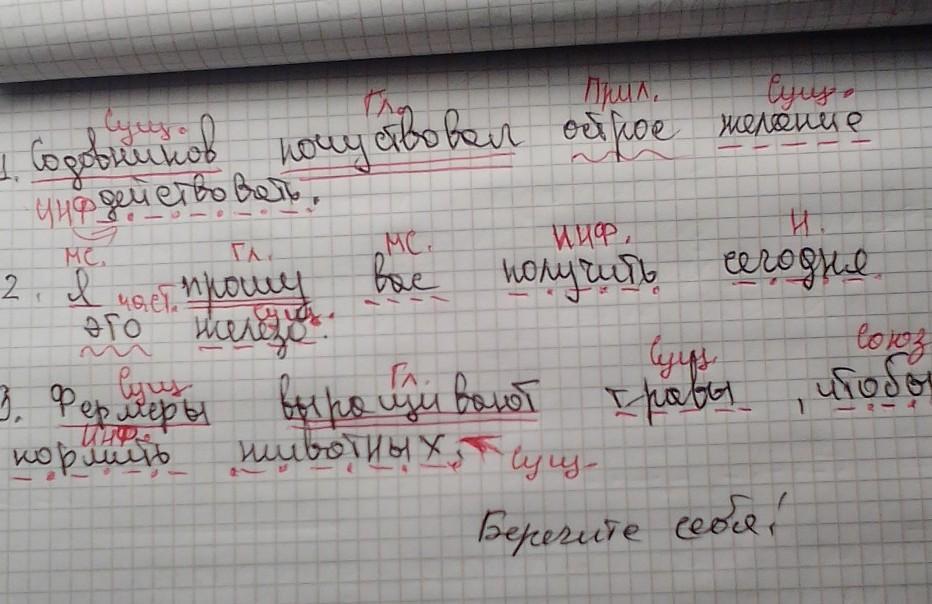 Сущ. Гл. Прил. Сущ.
1. Содовников почувствовал острое желание
инф действовать.
мс. Гл. мс. инф. н.
2. Я прошу вас получить сегодня
част. сущ.
это железо.
Сущ Гл. Сущ Союз
3. Фермеры выращивают травы, чтобы
инф.
кормить животных. Сущ
Берегите себя!